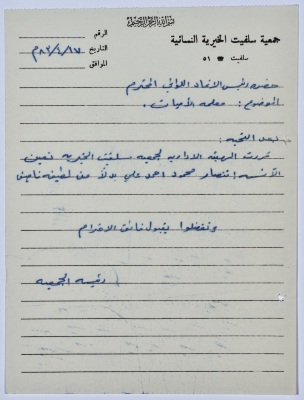 بسم الله الرحمن الرحيم
جمعية سلفيت الخيرية النسائية
سلفيت ☎ ٥١
الرقم
التاريخ ٨٢/٩/١٧م
الموافق
حضرة رئيس الاتحاد اللوائي المحترم
الموضوع: معلمة الأميات.
بعد التحية:
قررت الهيئة الادارية لجمعية سلفيت الخيرية تعيين
الآنسة انتصار محمود احمد علي بدلاً من لطيفة
وتفضلوا بقبول فائق الاحترام
رئيسة الجمعية